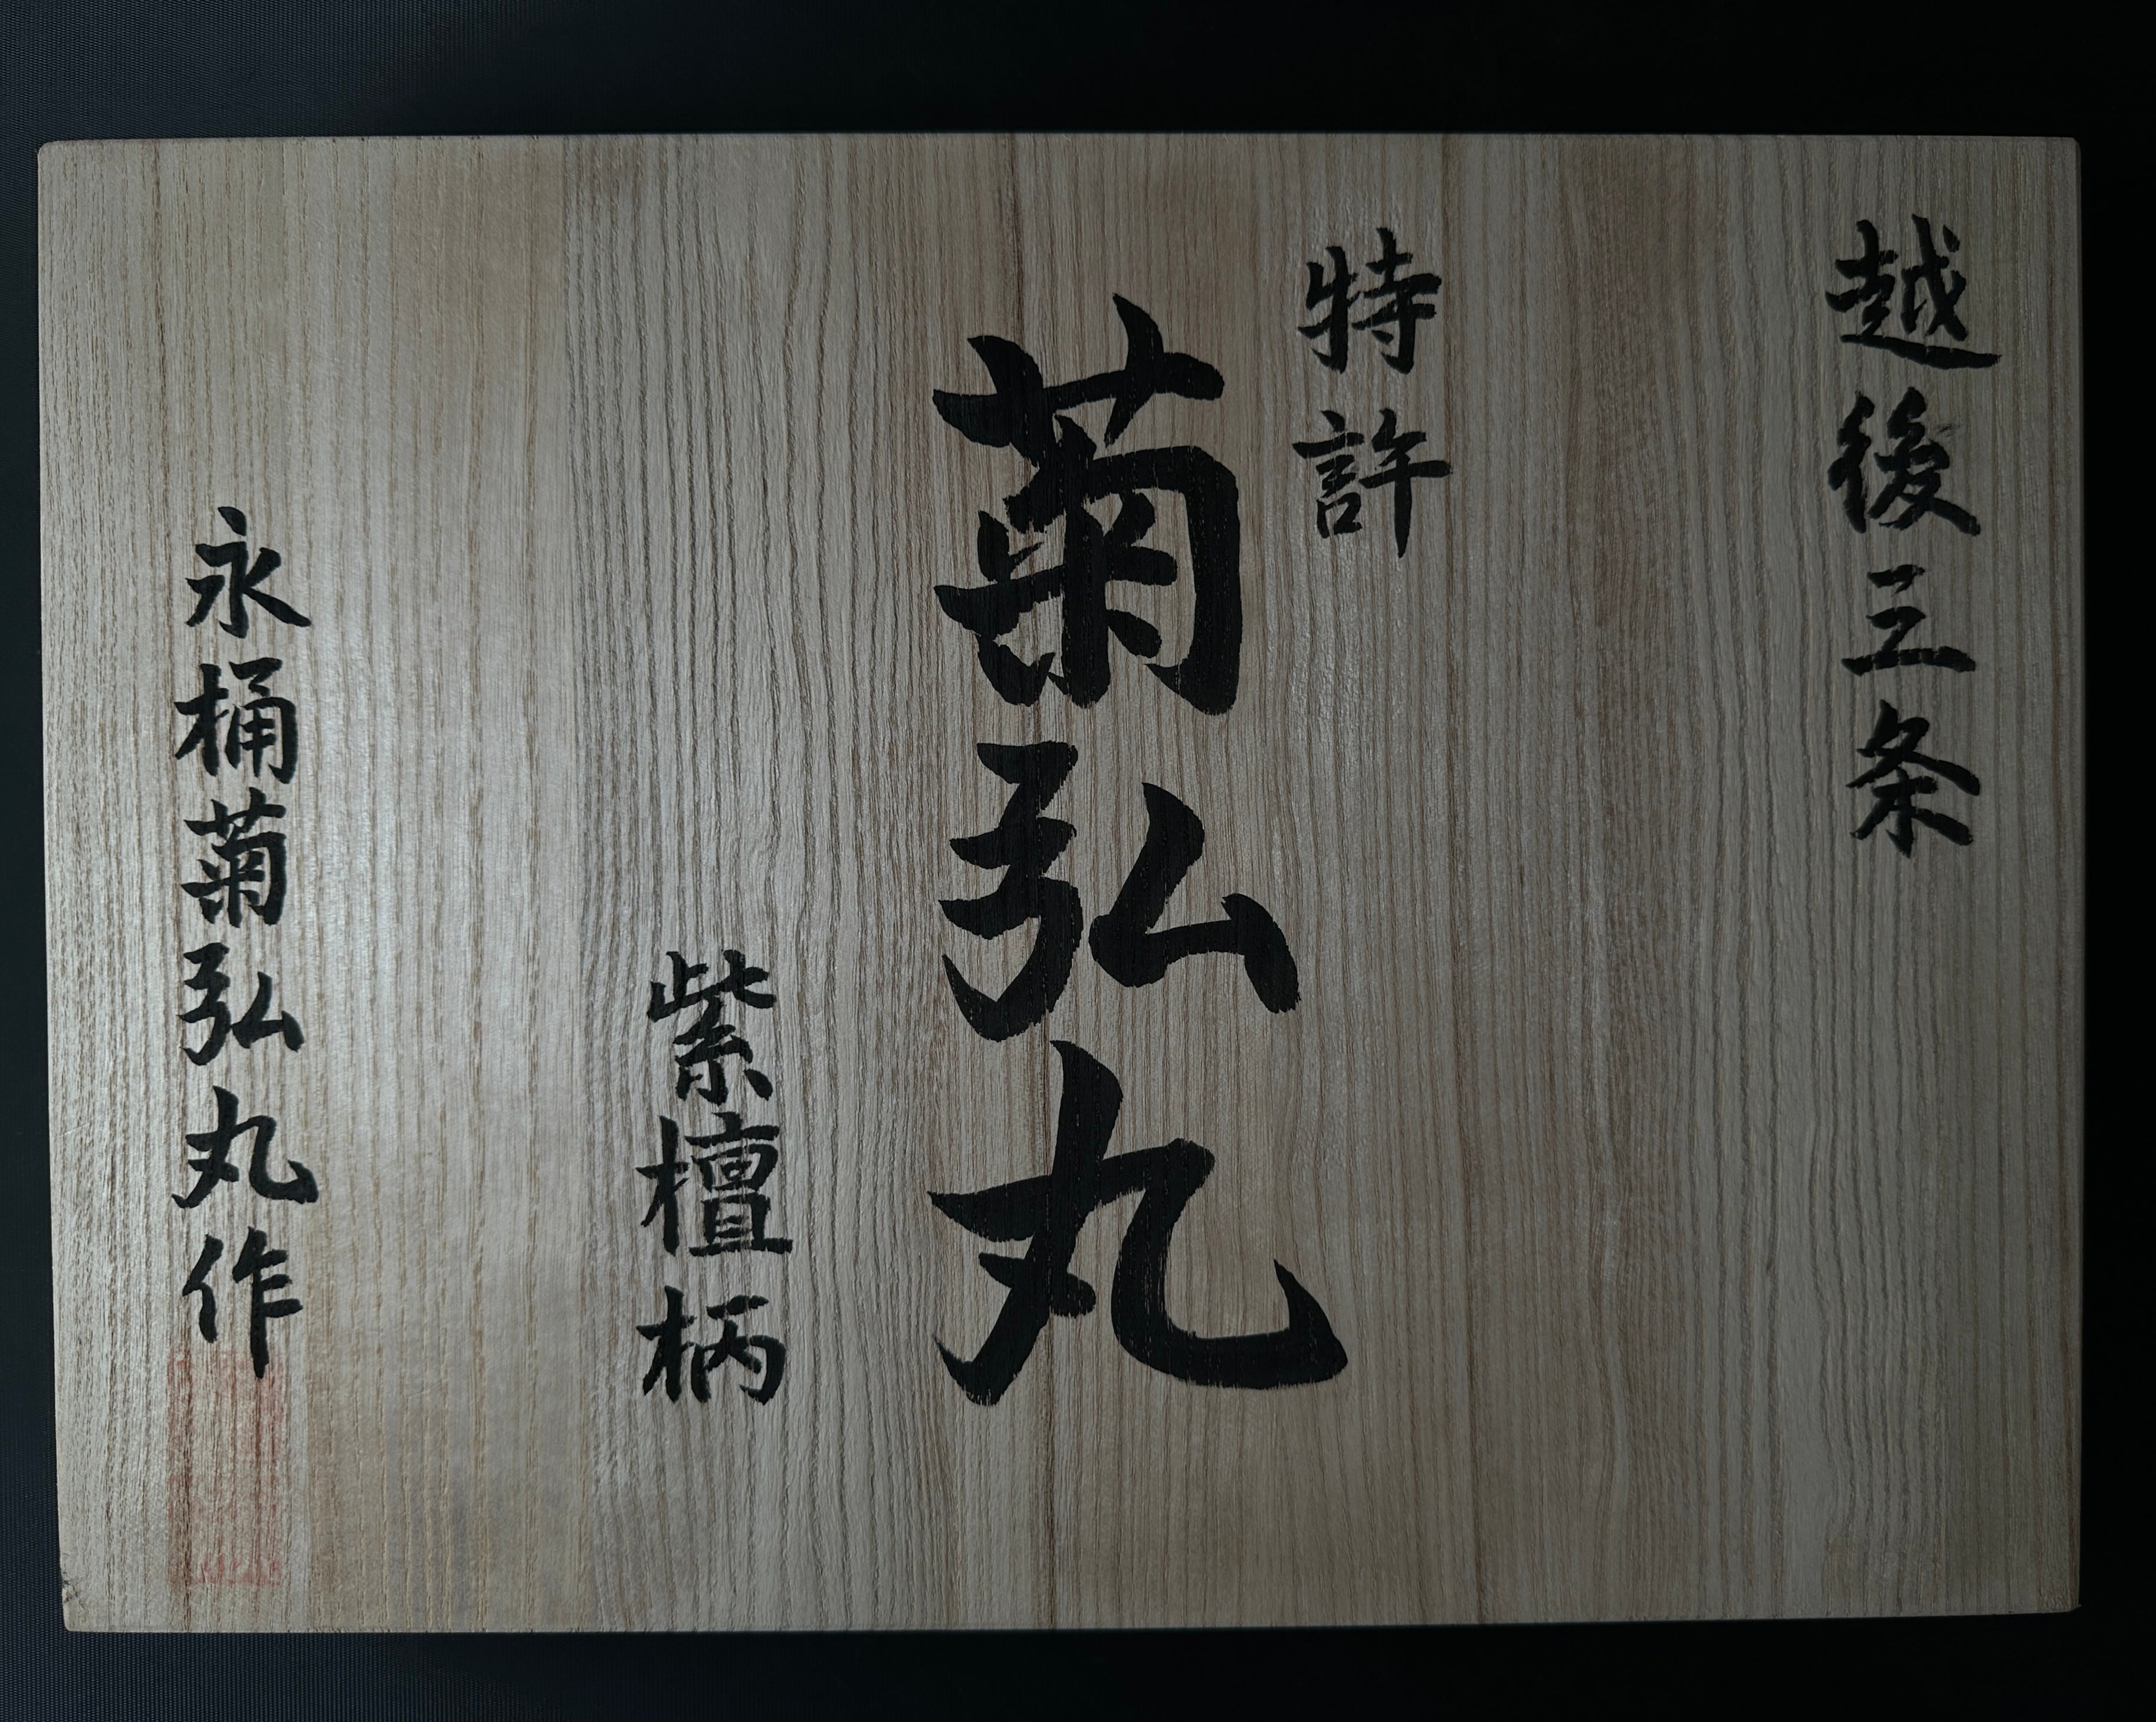 越後三条
特許
菊弘丸
紫檀柄
永桶菊弘丸作